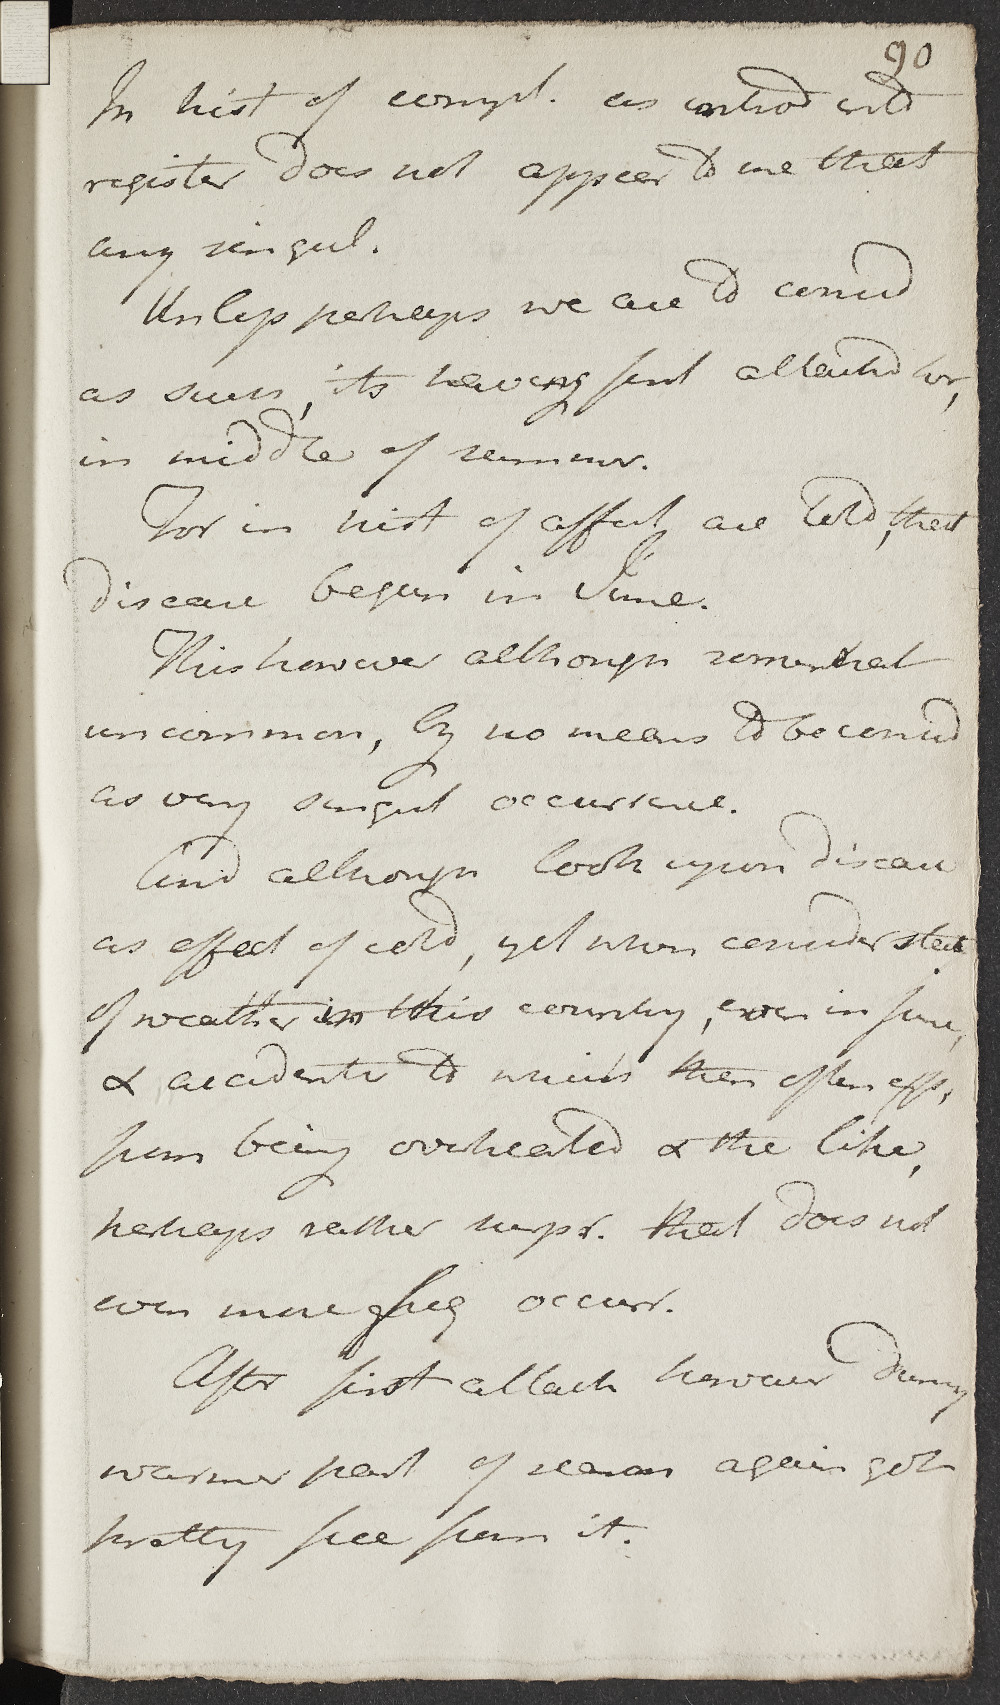 90
In hist of compl. as introd into
register does not appear to me that
any singul.
Unless perhaps we are to consid
as such, its having first attackd her,
in middle of summer.
For in hist of affect, are told, that
disease begun in June.
This however although somewhat
uncommon, by no means to be consid
as very singul occurrence.
And although look upon disease
as effect of cold, yet when consider state
of weather in this country, even in June,
& accidents to which then often exp,
from being overheated & the like,
perhaps rather surpr. that does not
even more freq occurr.
After first attack however during
warmer part of season again got
pretty free from it.